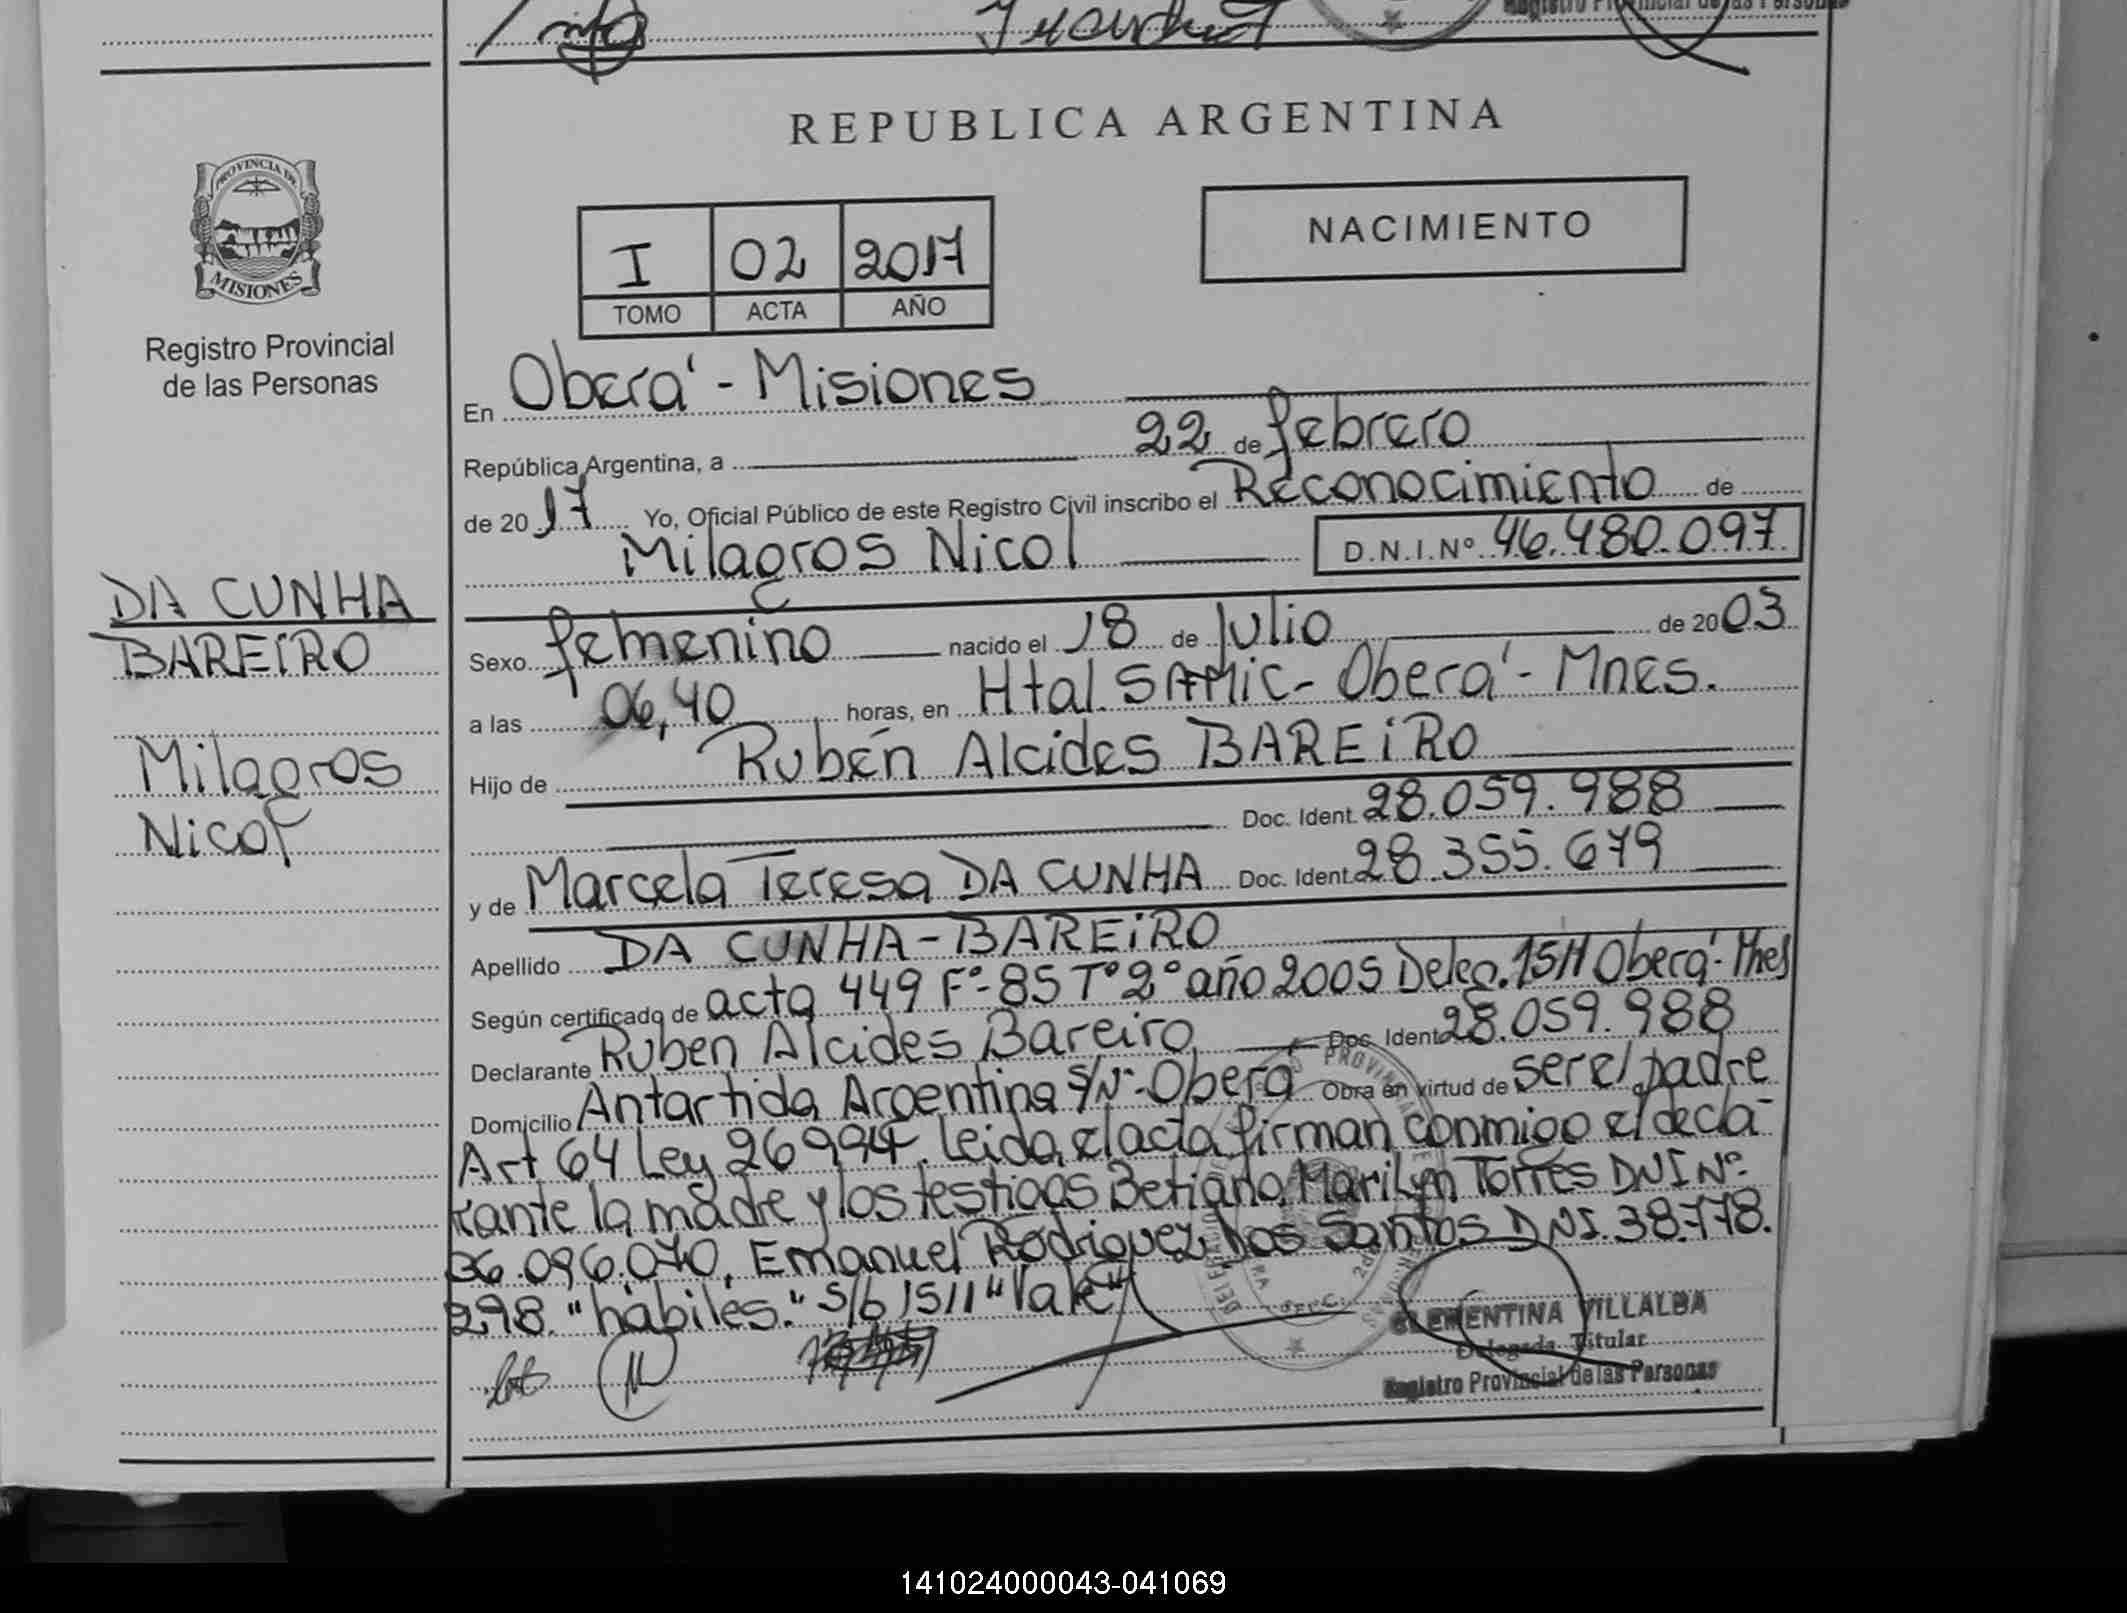 REPUBLICA ARGENTINA
NACIMIENTO
I 02 2017
TOMO ACTA AÑO
PROVINCIA DE
MISIONES
Registro Provincial
de las Personas
DA CUNHA
BAREIRO
Milagros
Nicol
En Oberá - Misiones
República Argentina, a 22 de febrero
de 2017 Yo, Oficial Público de este Registro Civil inscribo el Reconocimiento de
Milagros Nicol D.N.I.Nº 46.480.097
Sexo femenino nacido el 18 de Julio de 2003
a las 06,40 horas, en Htal SAMIC - Oberá - Mnes.
Hijo de Rubén Alcides BAREIRO
Doc. Ident. 28.059.988
y de Marcela Teresa DA CUNHA Doc. Ident. 28.355.679
Apellido DA CUNHA-BAREIRO
Según certificado de acta 449 Fº 85 Tº 2º año 2005 Deleg. 1511 Oberá - Mnes
Declarante Ruben Alcides Bareiro Doc. Ident 28.059.988
Domicilio Antartida Argentina S/Nº - Oberá Obra en virtud de ser el padre
Art 64 Ley 26994. Leida el acta firman conmigo el decla-
rante la madre y los testigos Betiana Marilyn Torres DNI Nº
36.096.070, Emanuel Rodriguez Dos Santos DNI. 38.778.
298. "hábiles." S/b 1511 "Vale"
CLEMENTINA VILLALBA
Delegada Titular
Registro Provincial de las Personas
141024000043-041069